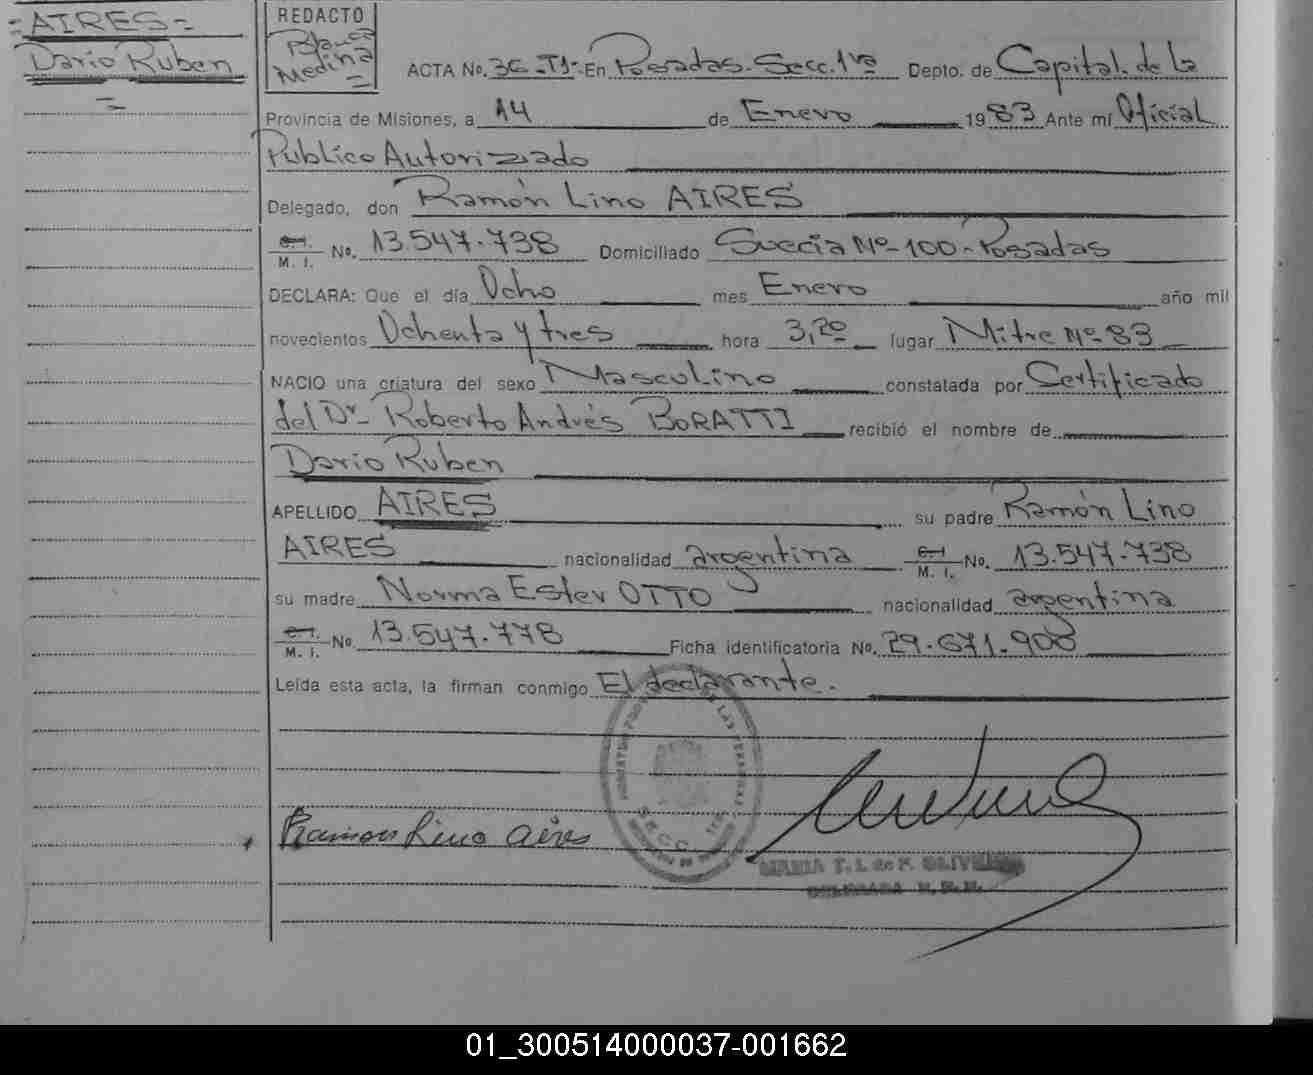 =AIRES=
Dario Ruben
=
REDACTO
Blanca
Medina
=
ACTA No. 36-T1- En Posadas. Secc. 1ra Depto. de Capital. de la
Provincia de Misiones, a 14 de Enero 1983 Ante mí Oficial
Publico Autorizado
Delegado, don Ramón Lino AIRES
C.I. M. I. No. 13.547.738 Domiciliado Suecia Nº-100-Posadas
DECLARA: Que el día Ocho mes Enero año mil
novecientos Ochenta y tres hora 3,20 lugar Mitre Nº-83
NACIO una criatura del sexo Masculino constatada por Certificado
del Dr- Roberto Andrés BORATTI recibió el nombre de
Dario Ruben
APELLIDO AIRES su padre Ramón Lino
AIRES nacionalidad argentina C.I. M. I. No. 13.547.738
su madre Norma Ester OTTO nacionalidad argentina
C.I. M. I. No. 13.547.778 Ficha identificatoria No. 29.671.908
Leída esta acta, la firman conmigo El declarante.
SECC. 1ra
Ramon Lino Aires
MARIA T. I. de F.
DELEGADA
01_300514000037-001662